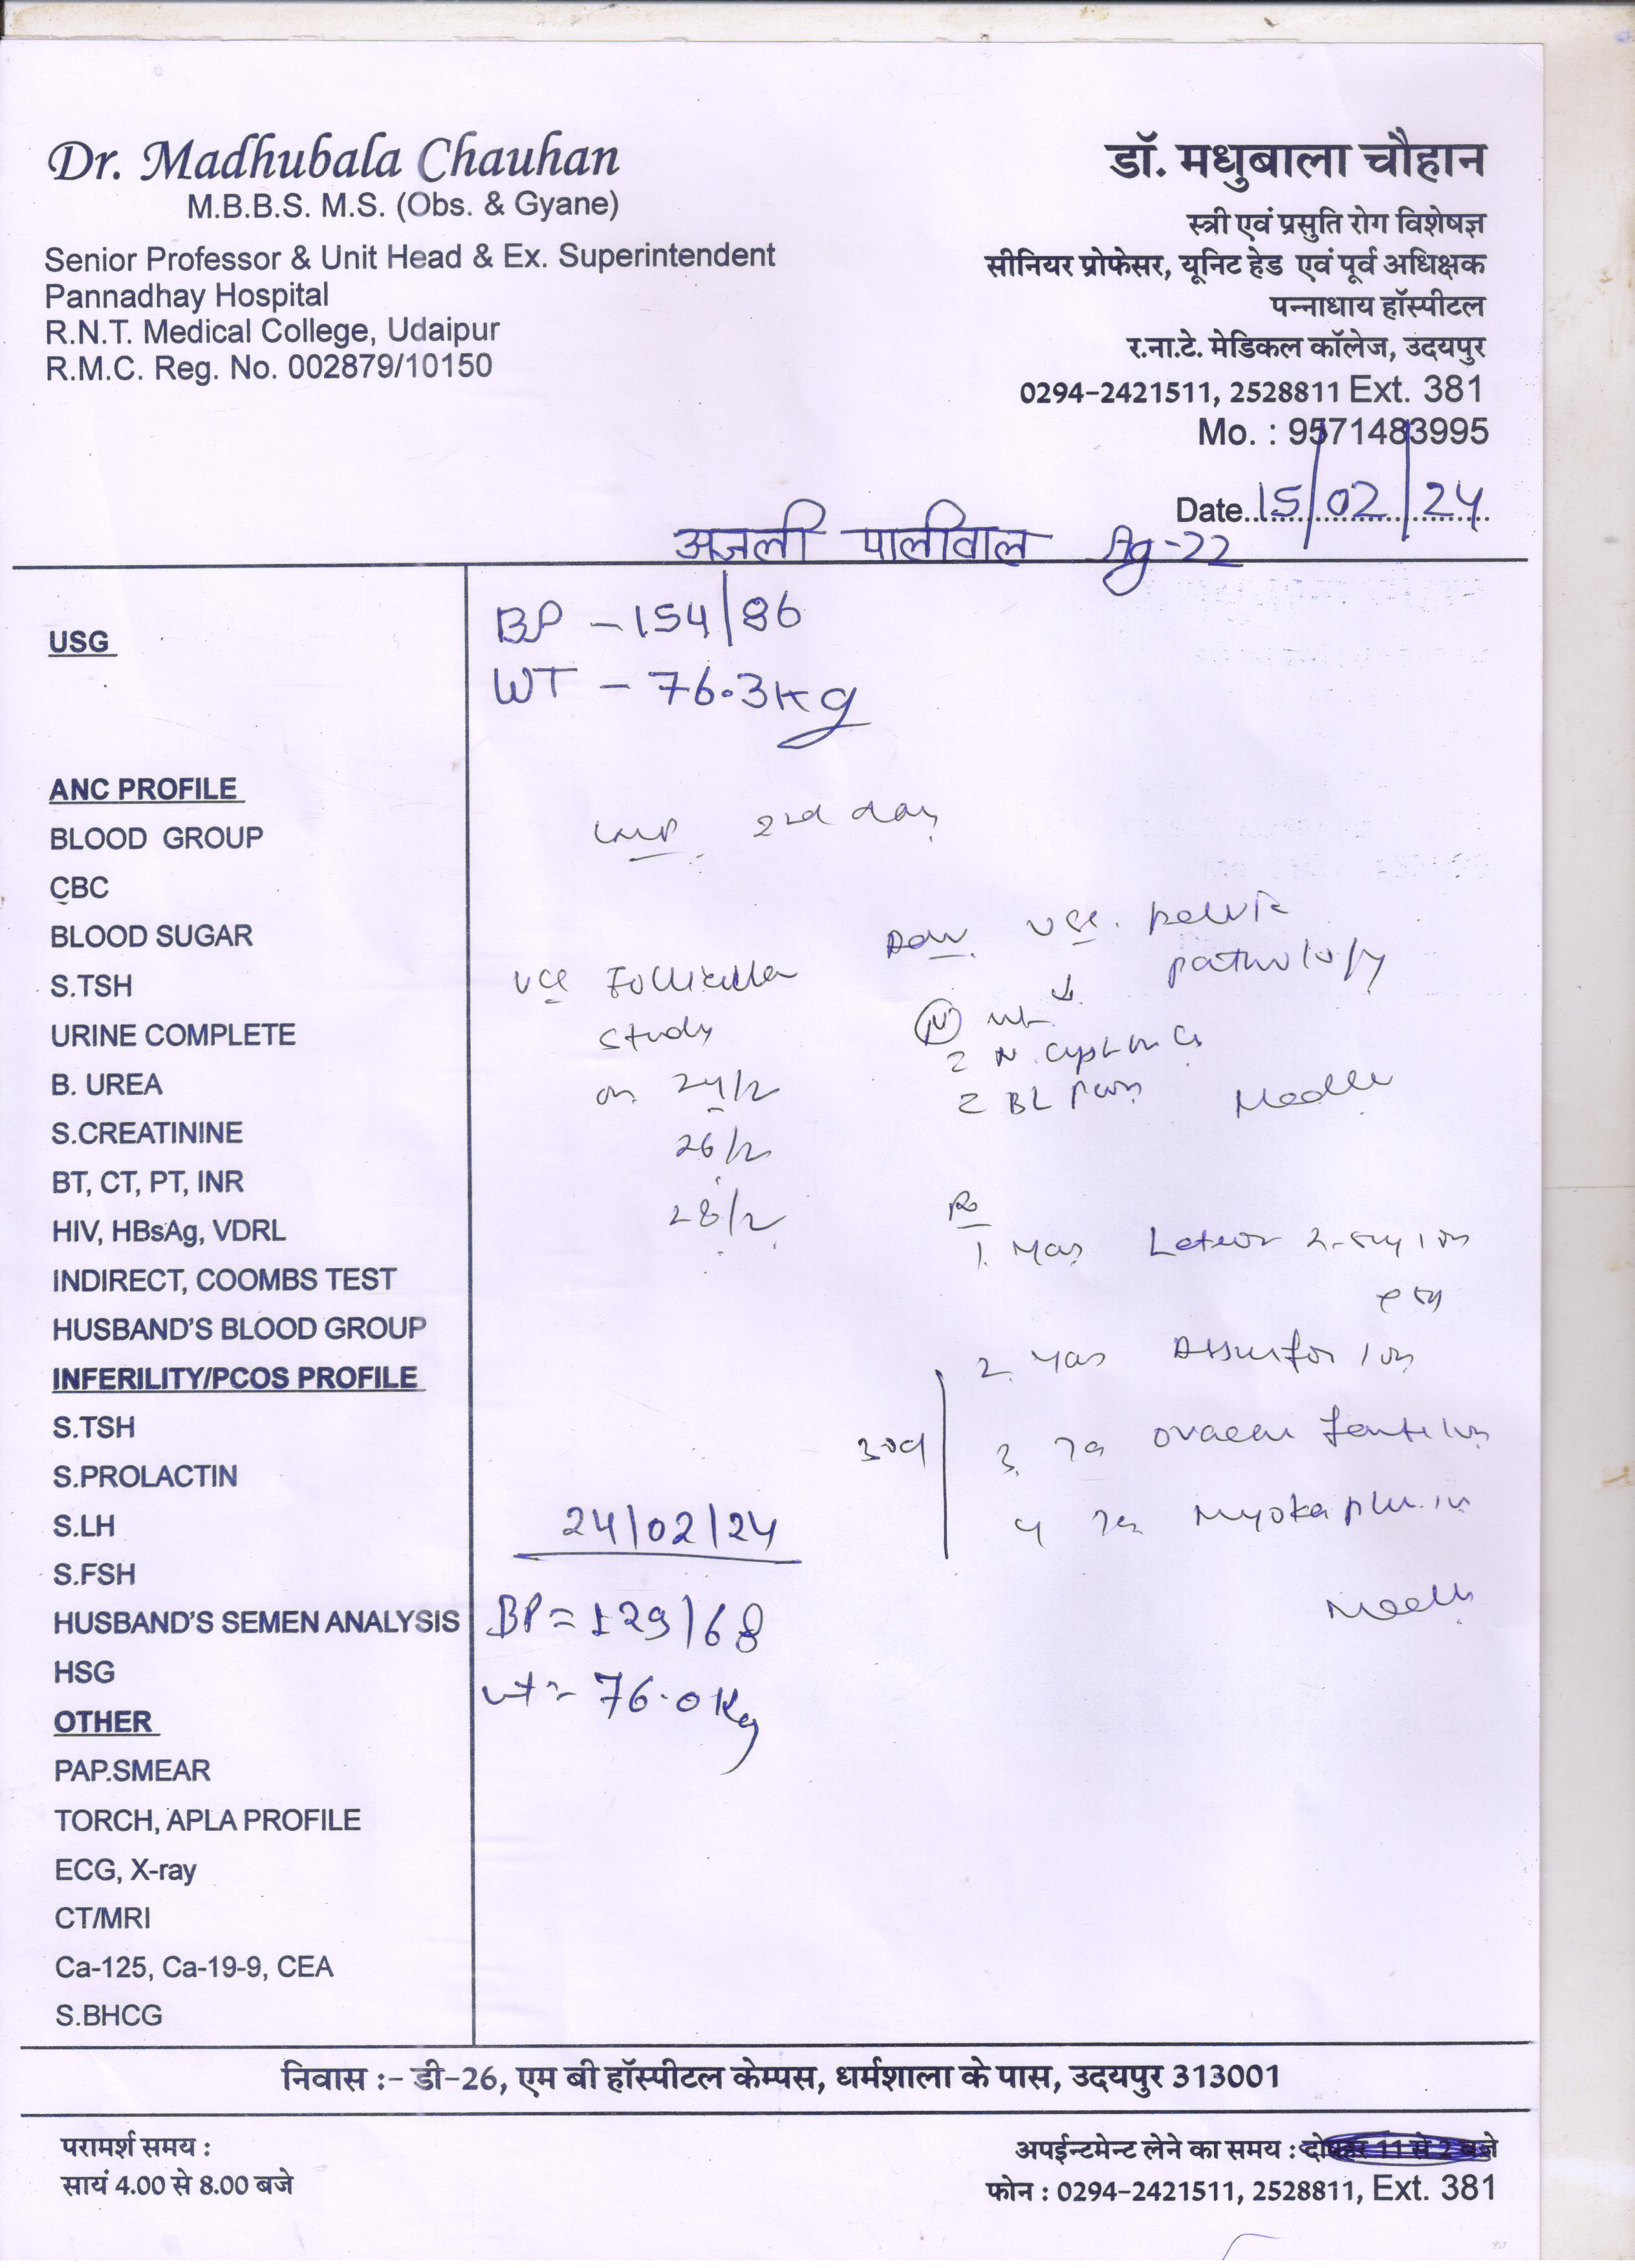 Dr. Madhubala Chauhan
M.B.B.S. M.S. (Obs. & Gyane)
Senior Professor & Unit Head & Ex. Superintendent
Pannadhay Hospital
R.N.T. Medical College, Udaipur
R.M.C. Reg. No. 002879/10150
डॉ. मधुबाला चौहान
स्त्री एवं प्रसुति रोग विशेषज्ञ
सीनियर प्रोफेसर, यूनिट हेड एवं पूर्व अधिक्षक
पन्नाधाय हॉस्पीटल
र.ना.टे. मेडिकल कॉलेज, उदयपुर
0294-2421511, 2528811 Ext. 381
Mo. : 9571483995
Date..15/02/24
अजली पालीवाल Ag-22
USG
ANC PROFILE
BLOOD GROUP
CBC
BLOOD SUGAR
S.TSH
URINE COMPLETE
B. UREA
S.CREATININE
BT, CT, PT, INR
HIV, HBsAg, VDRL
INDIRECT, COOMBS TEST
HUSBAND'S BLOOD GROUP
INFERILITY/PCOS PROFILE
S.TSH
S.PROLACTIN
S.LH
S.FSH
HUSBAND'S SEMEN ANALYSIS
HSG
OTHER
PAP.SMEAR
TORCH, APLA PROFILE
ECG, X-ray
CT/MRI
Ca-125, Ca-19-9, CEA
S.BHCG
BP - 154/86
WT - 76.3Kg
LMP 2nd day
USG. pelvic
pathology
Follicular
study
on 24/2
26/2
28/2
1.
2.
3.
4
24/02/24
BP = 129/68
wt = 76.0Kg
निवास :- डी-26, एम बी हॉस्पीटल केम्पस, धर्मशाला के पास, उदयपुर 313001
परामर्श समय :
सायं 4.00 से 8.00 बजे
अपईन्टमेन्ट लेने का समय : दोपहर 11 से 2 बजे
फोन : 0294-2421511, 2528811, Ext. 381